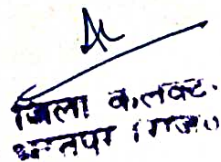 जिला कलक्ट.
भरतपुर (राज०)